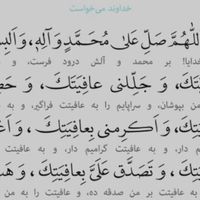 خداوند می‌خواست
اَللّٰهُمَّ صَلِّ عَلیٰ مُحَمَّدٍ وَ آلِهِ، وَ
خدایا! بر محمد و آلش درود فرست، و
عافِیَتَكَ، وَ جَلِّلْنی عافِیَتَكَ، وَ
من بپوشان، و سراپایم را به عافیتت فراگیر، و به
وَ اَکْرِمْنی بِعافِیَتِكَ، وَ
دار، و به عافیتت گرامیم دار، و به عافیتت
وَ تَصَدَّقْ عَلَیَّ بِعافِیَتِكَ، وَ
به عافیتت بر من صدقه ده، و عافیتت را به من